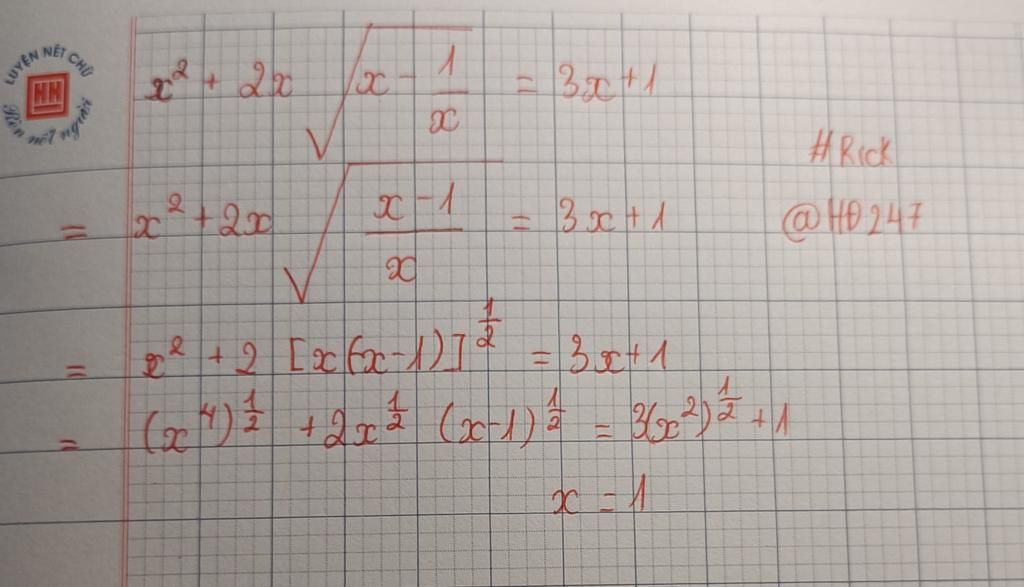 LUYỆN NÉT CHỮ
HN
Rèn nết người
x² + 2x √(x - 1/x) = 3x+1
#Rick
= x² + 2x √((x - 1)/x) = 3x + 1
@HD247
= x² + 2 [x(x-1)]^(1/2) = 3x+1
= (x⁴)^(1/2) + 2x^(1/2) (x-1)^(1/2) = 3(x²)^(1/2) + 1
x = 1